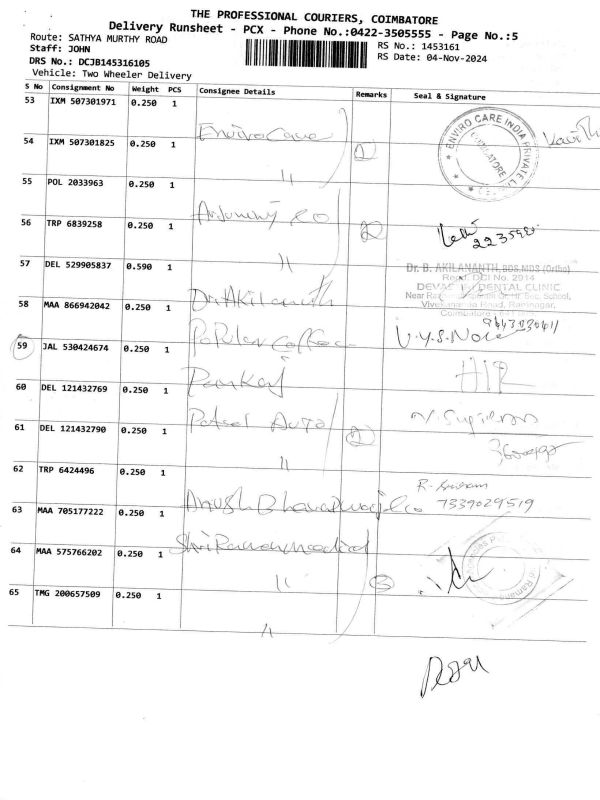 THE PROFESSIONAL COURIERS, COIMBATORE
Delivery Runsheet - PCX - Phone No.:0422-3505555 - Page No.:5
Route: SATHYA MURTHY ROAD
RS No.: 1453161
Staff: JOHN
RS Date: 04-Nov-2024
DRS No.: DCJB145316105
Vehicle: Two Wheeler Delivery
S No Consignment No Weight PCS Consignee Details Remarks Seal & Signature
53 IXM 507301971 0.250 1 Enviro Care
ENVIRO CARE INDIA PRIVATE
COIMBATORE
54 IXM 507301825 0.250 1 "
55 POL 2033963 0.250 1
56 TRP 6839258 0.250 1 "
57 DEL 529905837 0.590 1 Dr. Akilananth
Dr. B. AKILANANTH, BDS,MDS (Ortho)
Regd. DCI No. 2914
DENTAL CLINIC
58 MAA 866942042 0.250 1 Popular Coffee
59 JAL 530424674 0.250 1 Pankaj
60 DEL 121432769 0.250 1 Patsel Auto
61 DEL 121432790 0.250 1 "
62 TRP 6424496 0.250 1 Anush Bharadwaj & Co
7339029519
63 MAA 705177222 0.250 1 Shri Raman Medical
64 MAA 575766202 0.250 1 " 3
65 TMG 200657509 0.250 1 "